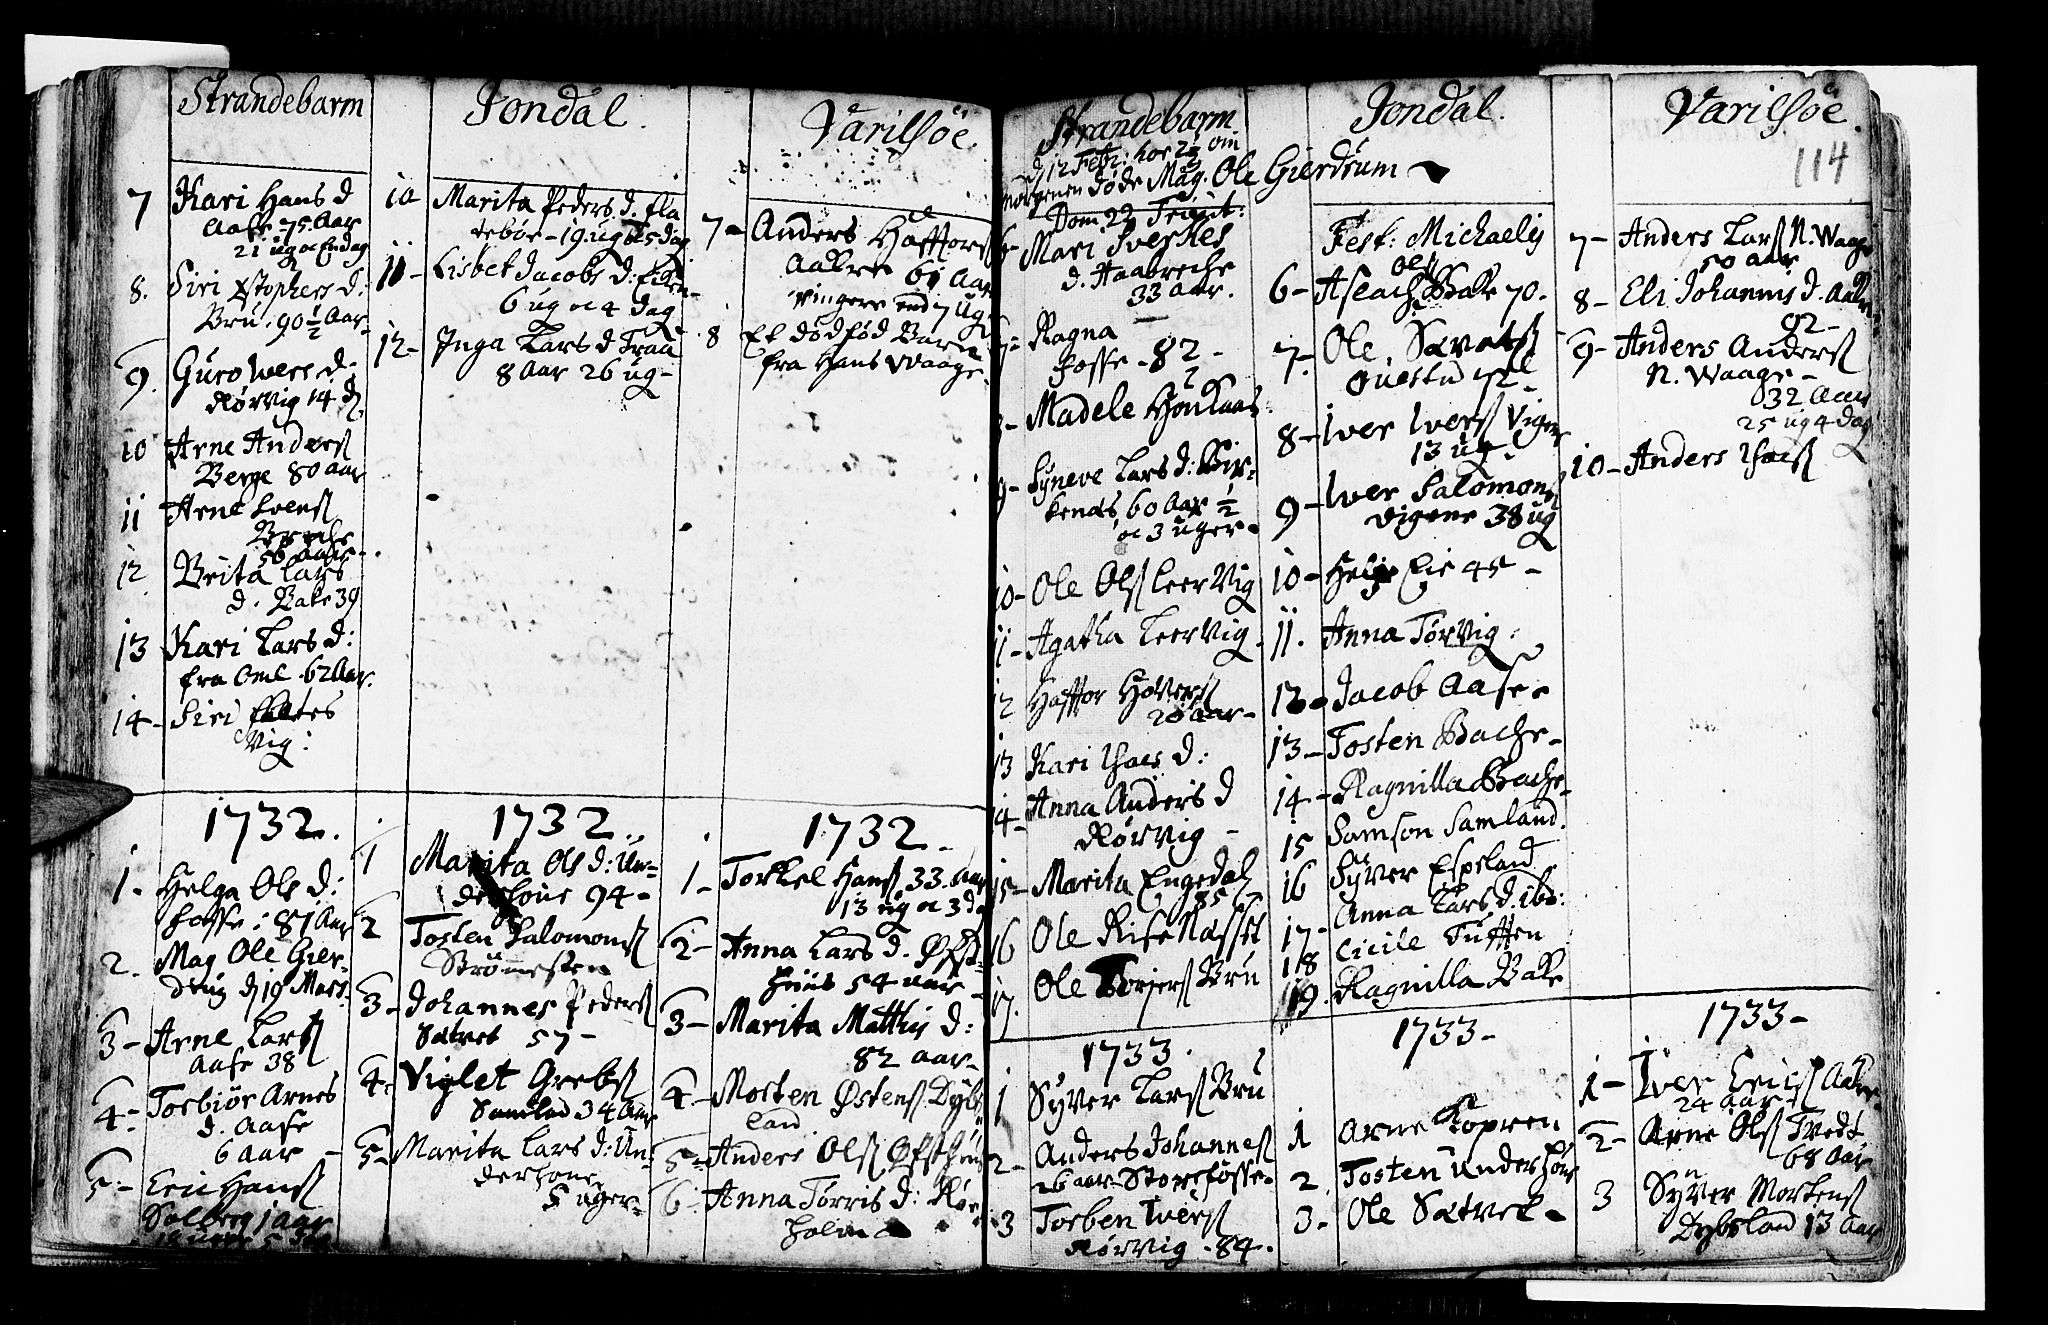 Strandebarm
7 Kari Hans d
Aase 75. Aar
21 ug oc En dag
8. Siri Xstophers d:
Bru. 90 1/2 Aar
9. Guro Ivers d.
Rørvig 14 d.
10 Arne Anders
Berge 80 aar
11 Arne Svens
56 Aar
12 Brita Lars
d. Bake 39
13 Kari Lars d:
fra Oml. 62 Aar.
14- Siri
Vig:
1732.
1. Helga Ols d:
Fosse: 81 Aar
2. Mag Ole Gier-
drug d 19 Mars.
3- Arne Lars
Aase 38
4- Torbiør Arnes
d. Aase
6 aar -
5- Eric Hans
Solberg 1 Aar
Jondal.
10 Marita Peders. d. Fla
tebøe - 19. ug oc 5 dag
11- Lisbet Jacobs d: Eiken-
6 ug oc 4 dag
12- Inga Lars d Traa
8 Aar 26 ug-
1732.
1 Marita Ols d: Un-
derhoue 94-
2 Tosten Salomons
Strømesten
3- Johannes Peders
Satvet 57-
4- Viglet Grebs
Samlad 34 Aar
5- Marita Lars d: Un-
derhoue
5 uger-
Varilsøe.
7- Anders Haftors
Aakre 61 Aar
ringere end 7 ug
8 Et dødfød Barn
fra Hans Waage.
1732.
1- Torkel Hans 33. Aar
13 ug oc 3 d
2- Anna Lars d. Øfst-
huus 54 aar
3- Marita Matthis d:
82 aar-
4- Morten Østens Dybs
land
5- Anders Ols Øfsthuus
6- Anna Torris d: Rør-
holm
Strandebarm
d 12 Febr: hor 2 1/2 om
morgenen døde Mag. Ole Gierdrum
Dom 22 Trinit:
6- Mari Sverkes
d. Haabreche
33 Aar.
7- Ragna
Fosse - 82-
8- Madele Honkaas
9- Synneve Lars d: Bir-
kenes 60 Aar 1/2
oc 3 uger-
10- Ole Ols Leervig
11- Agatha Leervig
12 Haftor Hovers
20 Aar-
13 Kari Ihaes d:
14- Anna Anders d
Rørvig -
15- Marita Engedal
85
16 Ole Risenæsset
17. Ole Torgers Bru
1733.
1 Syver Lars Bru
2- Anders Johannes
26 aar Storefosse.
3 Torben Ivers
Rørvig. 84.
Jondal.
Fest: Michaelis
Ols
6- Aslach Bake 70.
7- Ole Sævats
8- Iver Ivers Vigne
13 ug-
9- Iver Salomons
Vigene 38 ug
10- Helje Eie 45-
11. Anna Tørvig.
12- Jacob Aase.
13- Tosten Bache-
14- Ragnilla Bache-
15 Samson Samland.
16 Syver Espeland
17- Anna Lars d. ibd:
18 Cicile Tufften
19. Ragnilla Bake
1733-
1 Arne Kopren
2. Tosten Underhoue
3- Ole Sætvet-
Varilsøe.
114
7- Anders Lars N. Waage
50 aar
8- Eli Johannis d. Aakre
92-
9- Anders Anders
N. Waage-
32 Aar
25 ug 4 dag
10- Anders Ihaes
1733-
1- Iver Erics Aakre
24 aar
2- Arne Ols Tvedt
68 Aar
3 Syver Mortens
Dybsland 13 aar